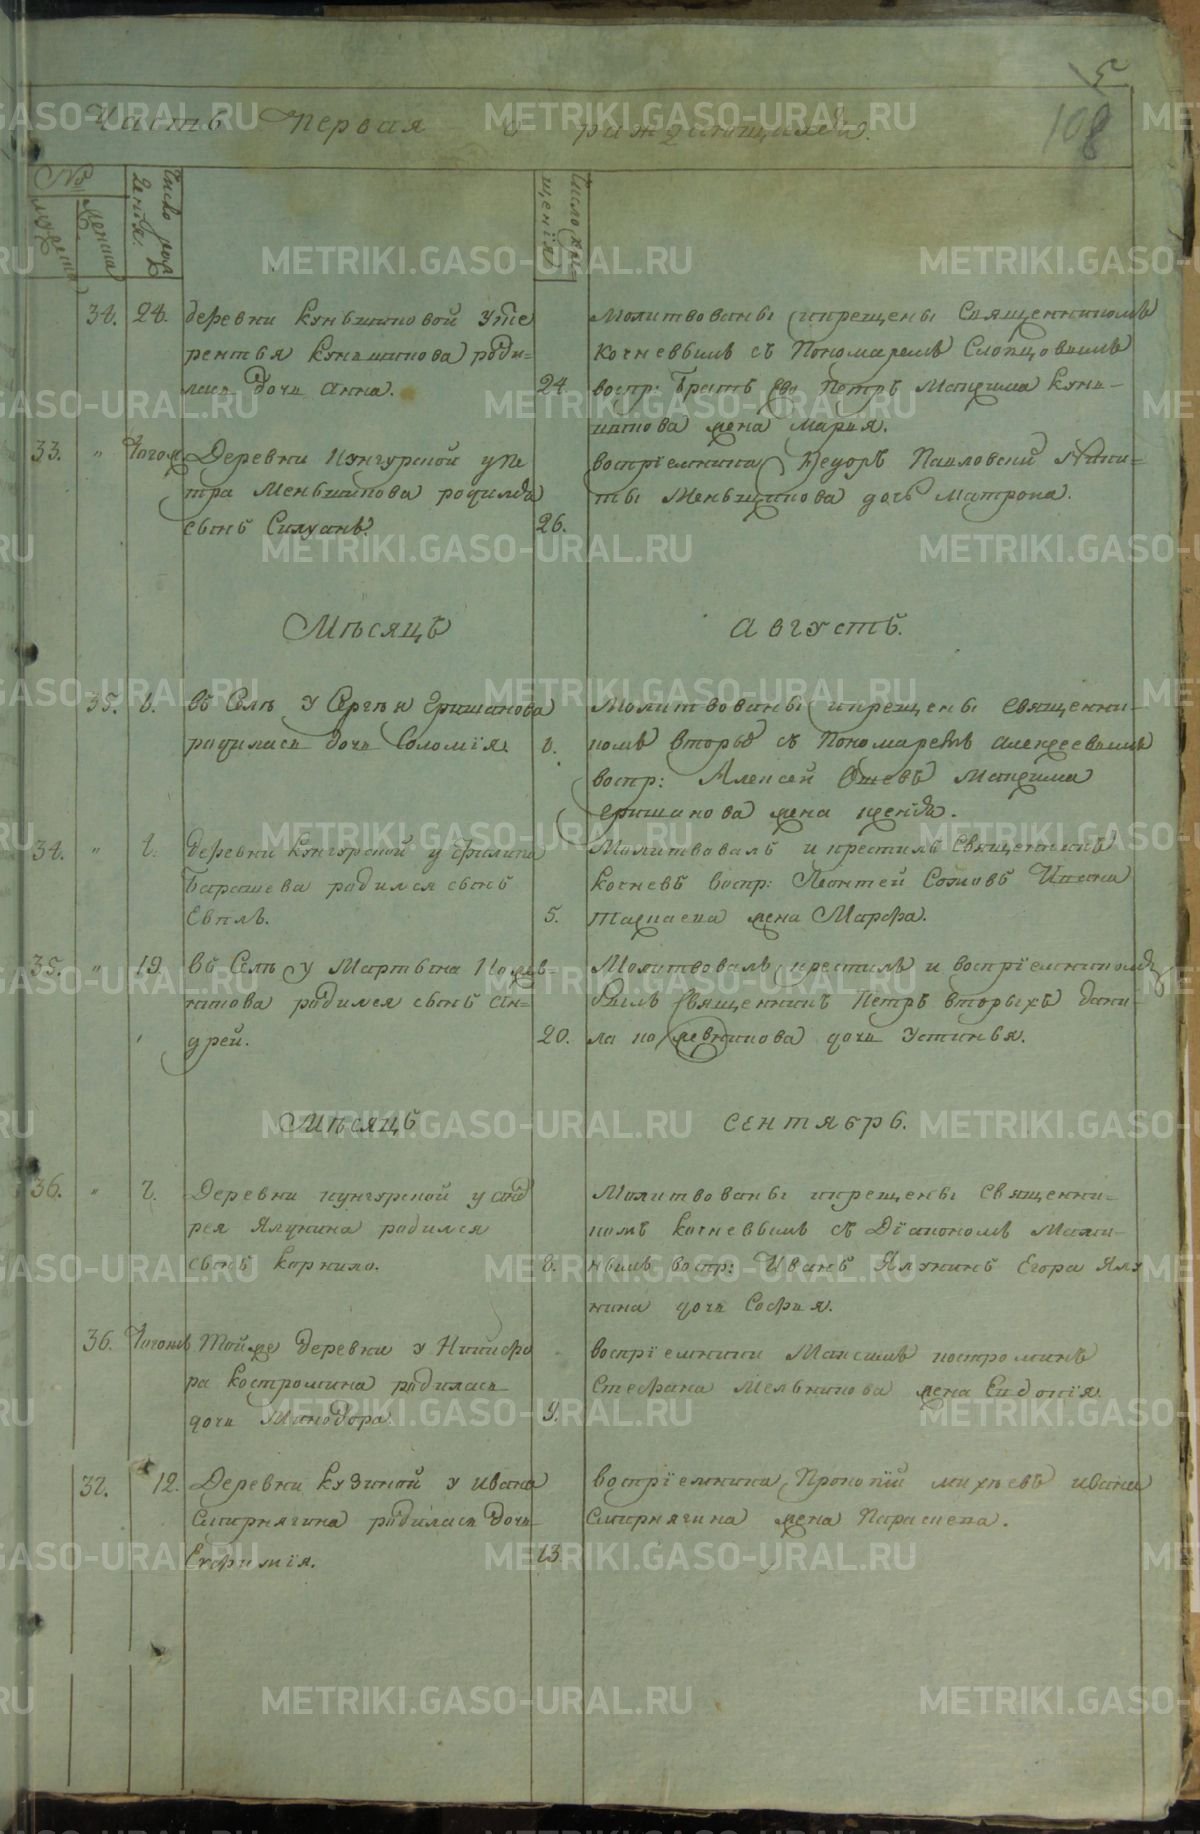 5
108
Часть Первая о раждающихся.
№
мужеска
женска
Число рождения.
Число крещенія
34. 24. деревни Куньшиновой у Те
рентья Куньшинова роди=
лась дочь Анна. 24.
Молитвованы и крещены Священникомъ
Кочневымъ съ Пономаремъ Слопцовымъ
воспр: братъ его Петръ Максима Кунь-
шинова жена Марья.
33. " Тогож Деревни Кунгурской у Пе
тра Меньшикова родился
сынъ Силуанъ. 26.
воспріемники Федоръ Павловский Ники=
ты Меньшикова дочь Матрона.
Мѣсяцъ Августъ.
35. 6. въ Селѣ у Сергѣя Еришанова
родилась дочь Соломія. 8.
Молитвованы и крещены священни-
комъ Вторыхъ съ Пономаремъ Алексеевымъ
воспр: Алексей Ошевъ Максима
Еришанова жена Ксенія.
34. " 2. деревни Кунгурской у Филипа
Барашева родился сынъ
Евплъ. 5.
Молитвовалъ и крестилъ Священникъ
Кочневъ воспр: Леонтей Сомовъ Ивана
жена Марфа.
35. " 19. въ Селѣ у Мартына Кожев=
никова родился сынъ Ан=
дрей. 20.
Молитвовалъ крестилъ и воспріемникомъ
былъ Священникъ Петръ Вторыхъ Дани-
ла кожевникова дочь Устинья.
Мѣсяцъ Сентябрь.
36. " 7. Деревни Кунгурской у Анд
рея Ялунина родился
сынъ Корнило. 8.
Молитвованы и крещены Священни=
комъ Кочневымъ съ Діакономъ Мами-
нымъ воспр: Иванъ Ялунинъ Егора Ялу
нина дочь Софья.
36. Тогожъ Тойже деревни у Никифо
ра Костромина родилась
дочь Минодора. 9.
воспріемники Максимъ Костроминъ
Стефана Мельникова жена Евдокія.
37. 12. Деревни Кузиной у Ивана
Смирнягина родилась дочь
Евфимія. 13
воспріемники Прокопій Михѣевъ Ивана
Смирнягина жена Параскева.
METRIKI.GASO-URAL.RU